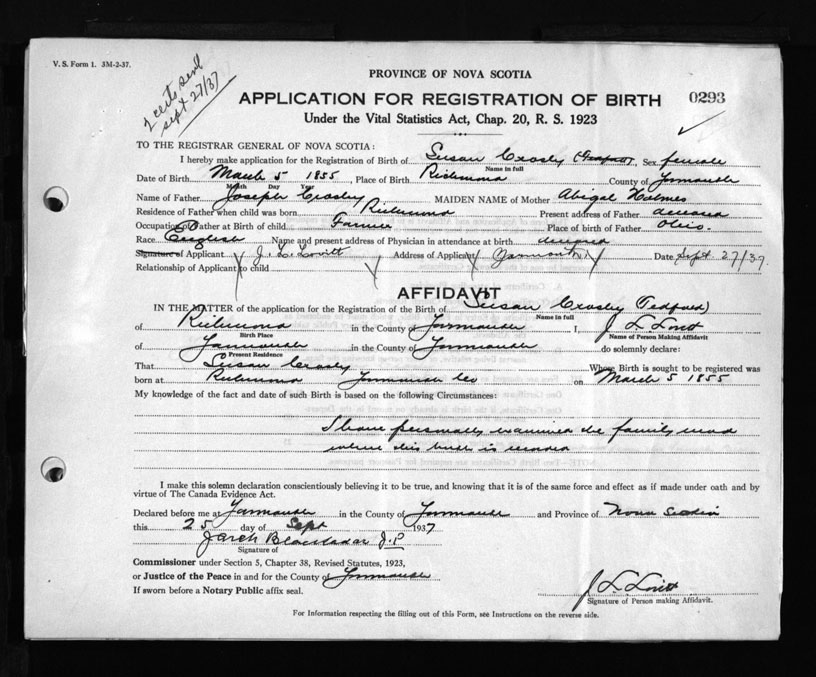 V. S. Form 1. 3M-2-37.
2 certs. send
sept 27/37
PROVINCE OF NOVA SCOTIA
APPLICATION FOR REGISTRATION OF BIRTH 0293
Under the Vital Statistics Act, Chap. 20, R. S. 1923
TO THE REGISTRAR GENERAL OF NOVA SCOTIA:
I hereby make application for the Registration of Birth of Susan Crosby (Tedford), Sex female
Name in full
Date of Birth March 5 1855, Place of Birth Richmond County of Yarmouth
Month Day Year
Name of Father Joseph Crosby MAIDEN NAME of Mother Abigal Holmes
Residence of Father when child was born Richmond Present address of Father deceased
Occupation of Father at Birth of child Farmer Place of birth of Father Ohio
Race English Name and present address of Physician in attendance at birth deceased
Signature of Applicant J. L. Lovitt Address of Applicant Yarmouth Date Sept 27/37.
Relationship of Applicant to child
AFFIDAVIT
IN THE MATTER of the application for the Registration of the Birth of Susan Crosby (Tedford)
Name in full
of Richmond in the County of Yarmouth I, J L Lovitt
Birth Place Name of Person Making Affidavit
of Yarmouth in the County of Yarmouth do solemnly declare:
Present Residence
That Susan Crosby Whose Birth is sought to be registered was
born at Richmond Yarmouth Co on March 5 1855
My knowledge of the fact and date of such Birth is based on the following Circumstances:
I have personally examined the family record
where this birth is recorded
I make this solemn declaration conscientiously believing it to be true, and knowing that it is of the same force and effect as if made under oath and by
virtue of The Canada Evidence Act.
Declared before me at Yarmouth in the County of Yarmouth and Province of Nova Scotia
this 25 day of Sept 1937
J.P
Signature of
Commissioner under Section 5, Chapter 38, Revised Statutes, 1923,
or Justice of the Peace in and for the County of Yarmouth
If sworn before a Notary Public affix seal.
J. L. Lovitt
Signature of Person making Affidavit.
For Information respecting the filling out of this Form, see Instructions on the reverse side.